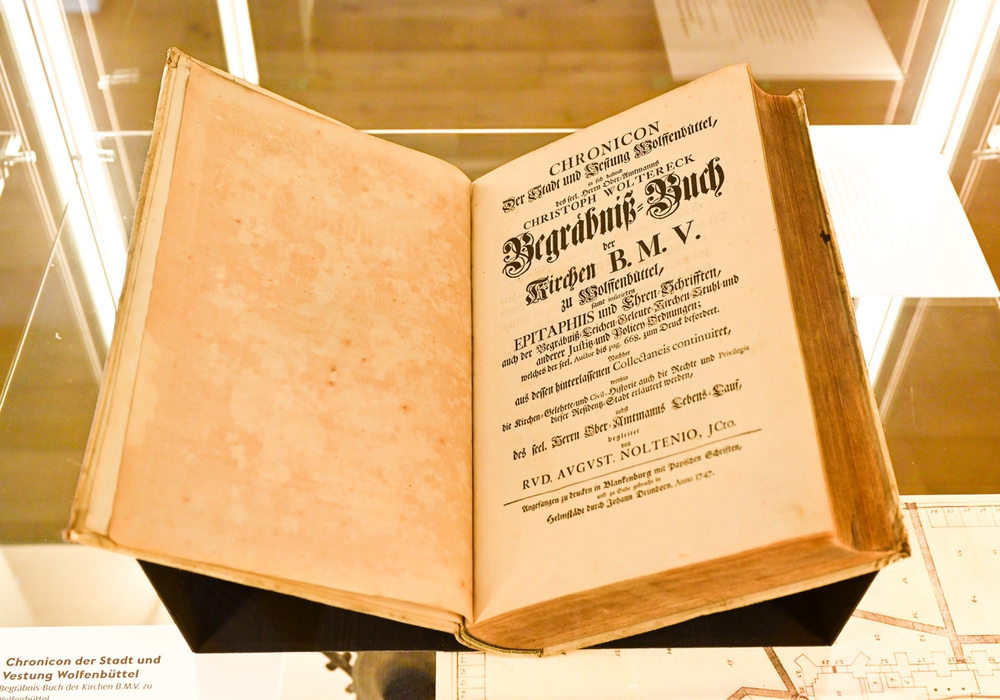 CHRONICON
Der Stadt und Vestung Wolffenbüttel,
in sich haltend
des seel. Herrn Ober-Amtmanns
CHRISTOPH WOLTERECK
Begräbniß-Buch
der
Kirchen B. M. V.
zu Wolffenbüttel,
samt inserirten
EPITAPHIIS und Ehren-Schrifften,
auch der Begräbniß-Leichen-Geleute-Kirchen-Stuhl-und
anderer Justitz-und Policey-Ordnungen;
welches der seel. Auctor bis pag. 668. zum Druck befordert.
Nachher
aus dessen hinterlassenen Collectaneis continuiret,
worin
die Kirchen-Gelehrte-und Civil-Historie auch die Rechte und Privilegia
dieser Residentz-Stadt erläutert werden,
nebst
des seel. Herrn Ober-Amtmanns Lebens-Lauf,
begleitet
von
RVD. AVGVST. NOLTENIO, JCto.
Angefangen zu drucken in Blankenburg mit Papischen Schriften,
und zu Ende gebracht in
Helmstädt durch Johann Drimborn. Anno 1747.
Chronicon der Stadt und
Vestung Wolfenbüttel
Begräbnis-Buch der Kirchen B.M.V. zu
Wolfenbüttel